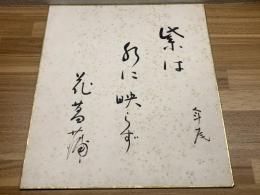 紫は
水に映らず
花菖蒲
年尾